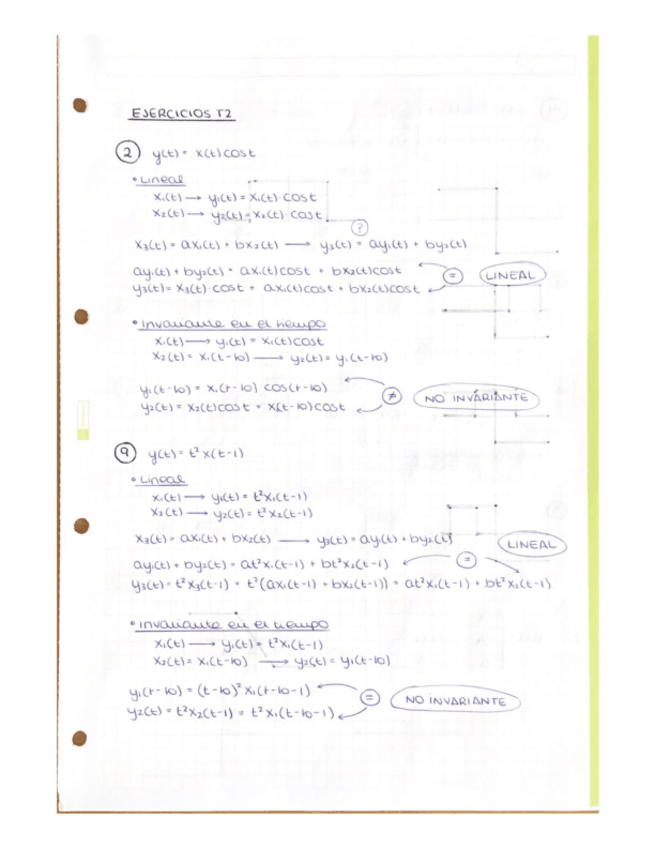 EJERCICIOS T2
2 y(t) = x(t) cost
• Lineal
x₁(t) → y₁(t) = x₁(t)·cost
x₂(t) → y₂(t) = x₂(t)·cost
?
x₃(t) = ax₁(t) + bx₂(t) → y₃(t) = ay₁(t) + by₂(t)
ay₁(t) + by₂(t) = ax₁(t)cost + bx₂(t)cost
= LINEAL
y₃(t) = x₃(t)·cost = ax₁(t)cost + bx₂(t)cost
• Invariante en el tiempo
x₁(t) → y₁(t) = x₁(t)cost
x₂(t) = x₁(t-t0) → y₂(t) = y₁(t-t0)
y₁(t-t0) = x₁(t-t0) cos(t-t0)
≠ NO INVARIANTE
y₂(t) = x₂(t)cost = x(t-t0)cost
9 y(t) = t² x(t-1)
• Lineal
x₁(t) → y₁(t) = t²x₁(t-1)
x₂(t) → y₂(t) = t²x₂(t-1)
x₃(t) = ax₁(t) + bx₂(t) → y₃(t) = ay₁(t) + by₂(t)
LINEAL
ay₁(t) + by₂(t) = at²x₁(t-1) + bt²x₂(t-1) =
y₃(t) = t²x₃(t-1) = t²(ax₁(t-1) + bx₂(t-1)) = at²x₁(t-1) + bt²x₂(t-1)
• Invariante en el tiempo
x₁(t) → y₁(t) = t²x₁(t-1)
x₂(t) = x₁(t-t0) → y₂(t) = y₁(t-t0)
y₁(t-t0) = (t-t0)² x₁(t-t0-1)
= NO INVARIANTE
y₂(t) = t²x₂(t-1) = t² x₁(t-t0-1)